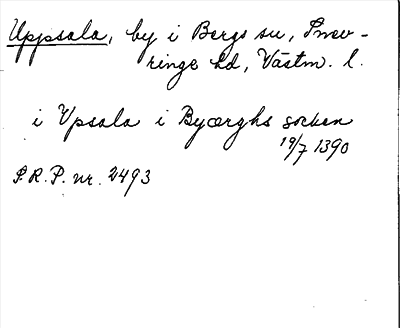 Uppsala, by i Bergs sn, Snev-
ringe hd, Västm. l.
i Vpsala i Byærghs socken
19/7 1390
S.R.P. nr. 2493